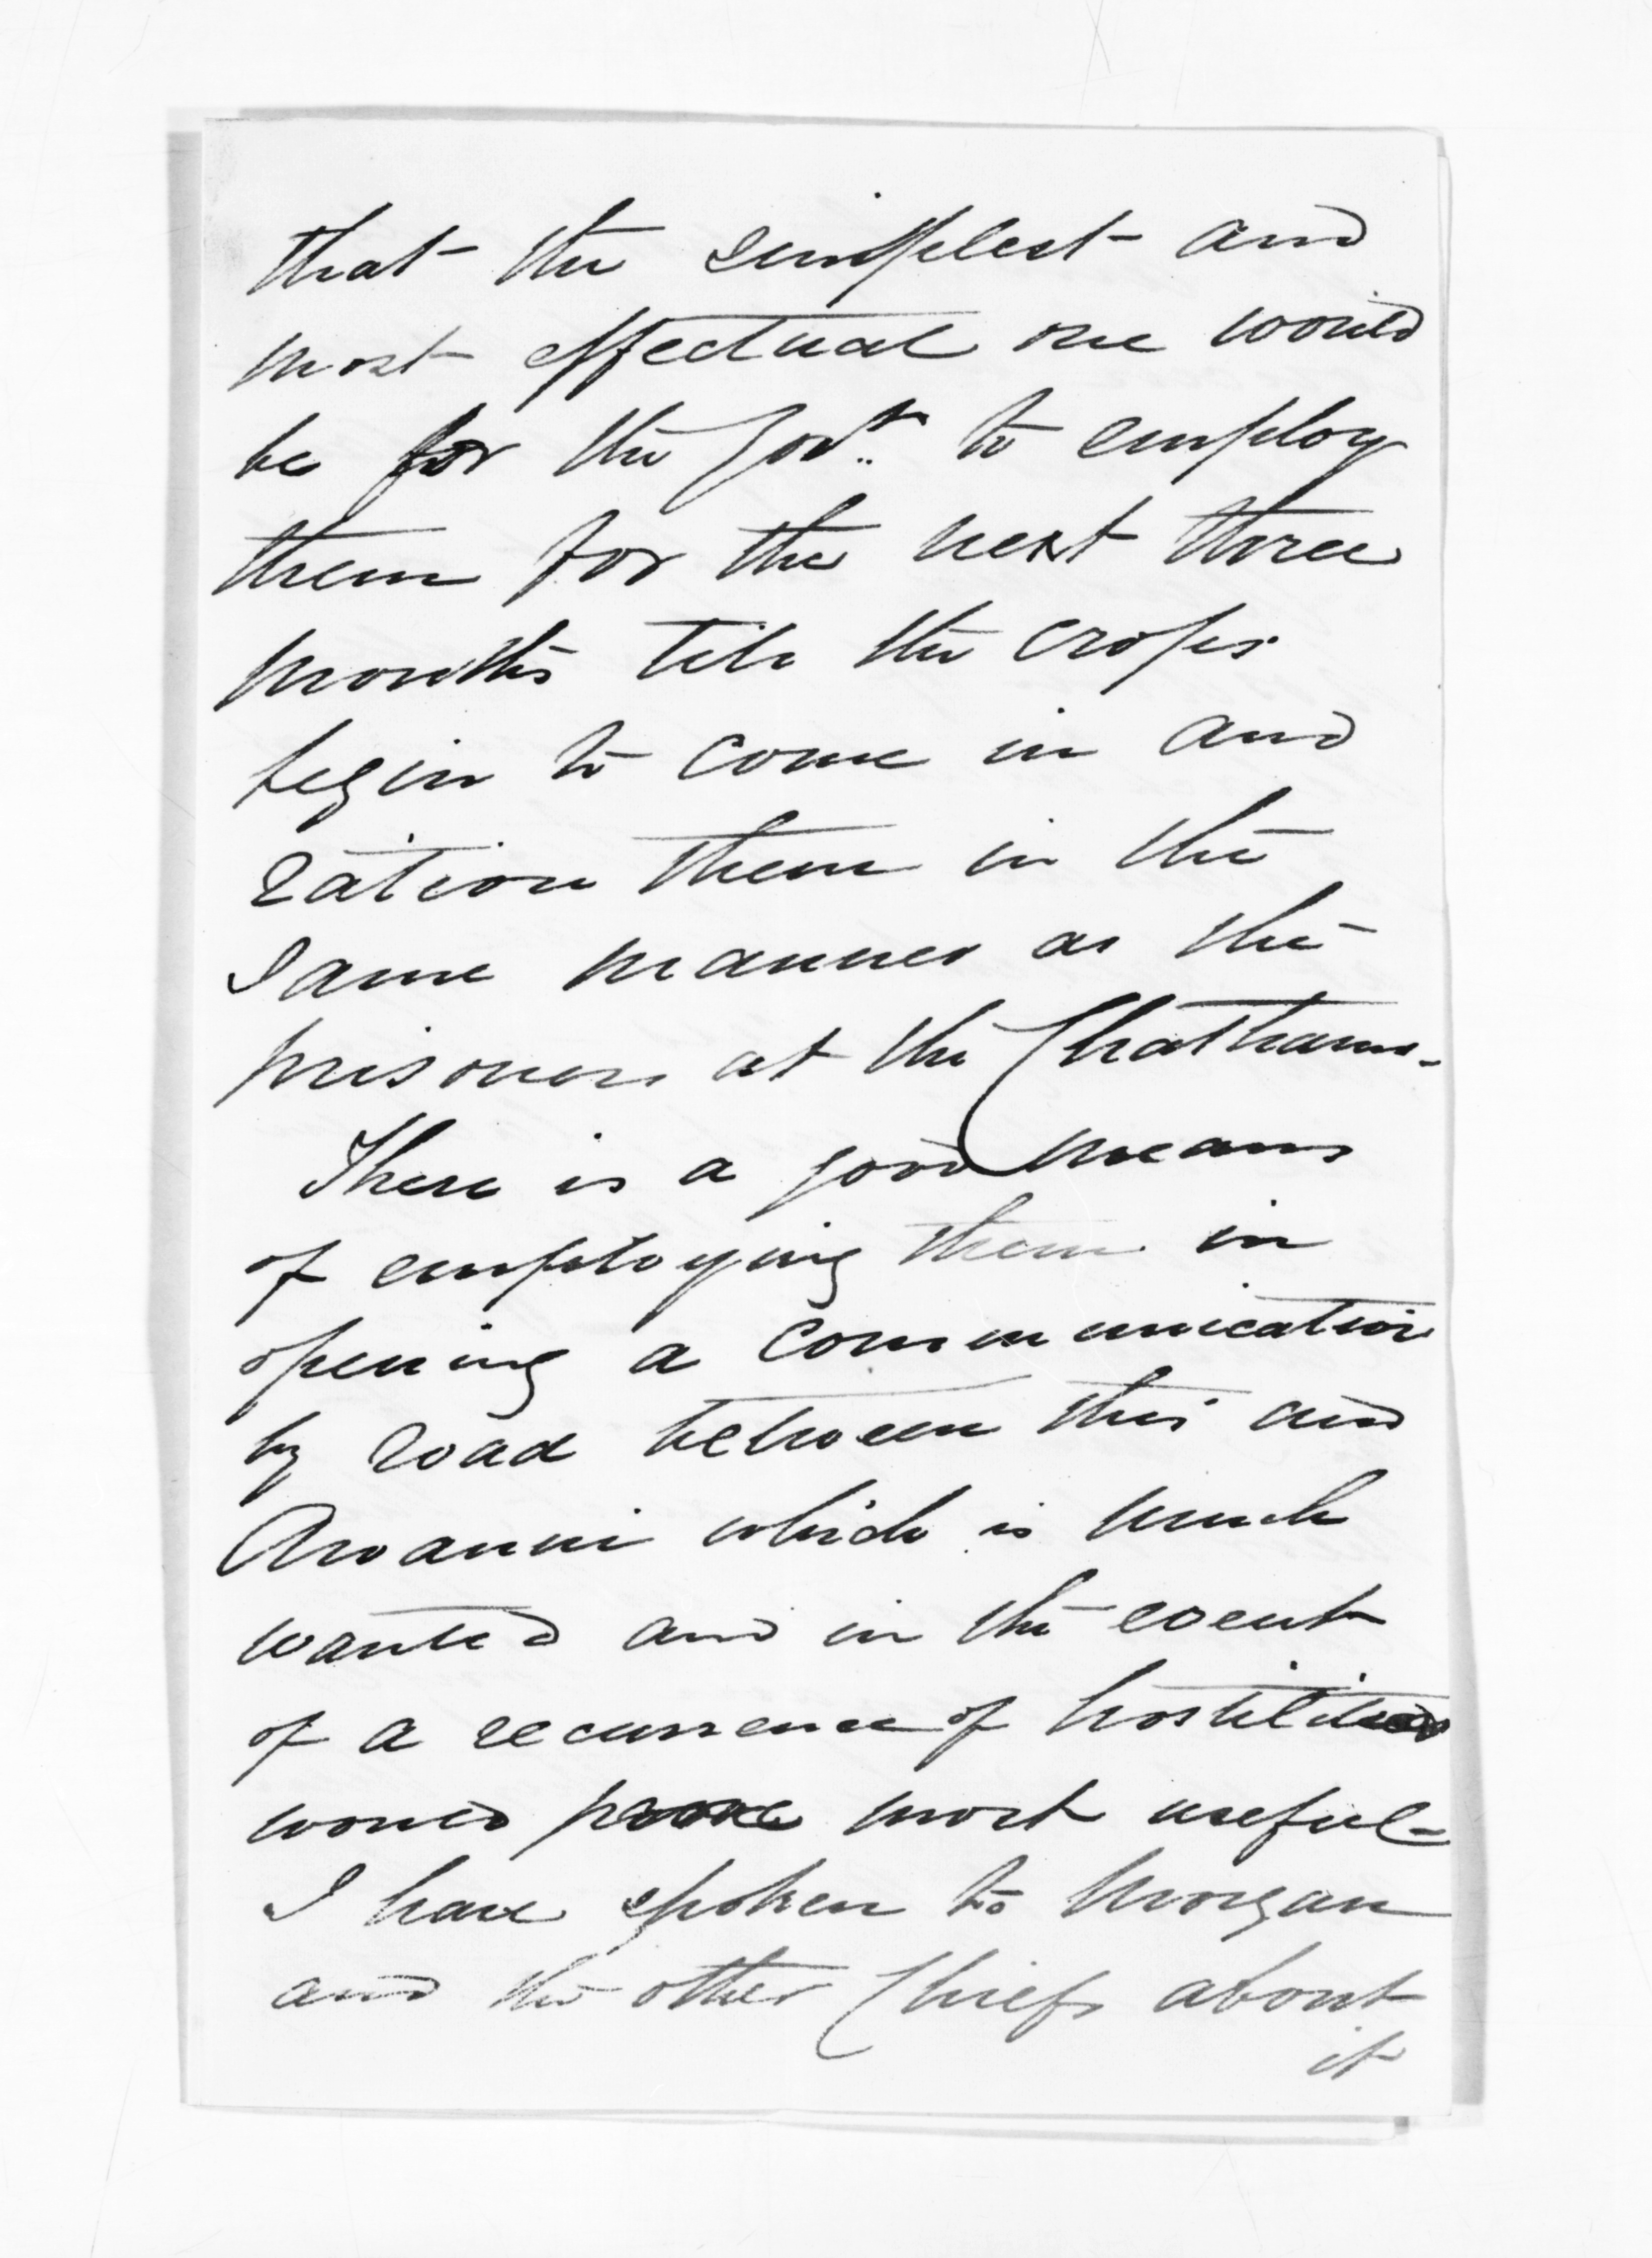 that the simplest and
most effectual one would
be for the Govt. to employ
them for the next three
months till the crops
begin to come in and
ration them in the
same manner as the
prisoners at the Chathams -
There is a good means
of employing them in
opening a communication
by road between this and
Aroanui which is much
wanted and in the event
of a recurrence of hostilities
would prove most useful -
I have spoken to Morgan
and the other Chiefs about
it